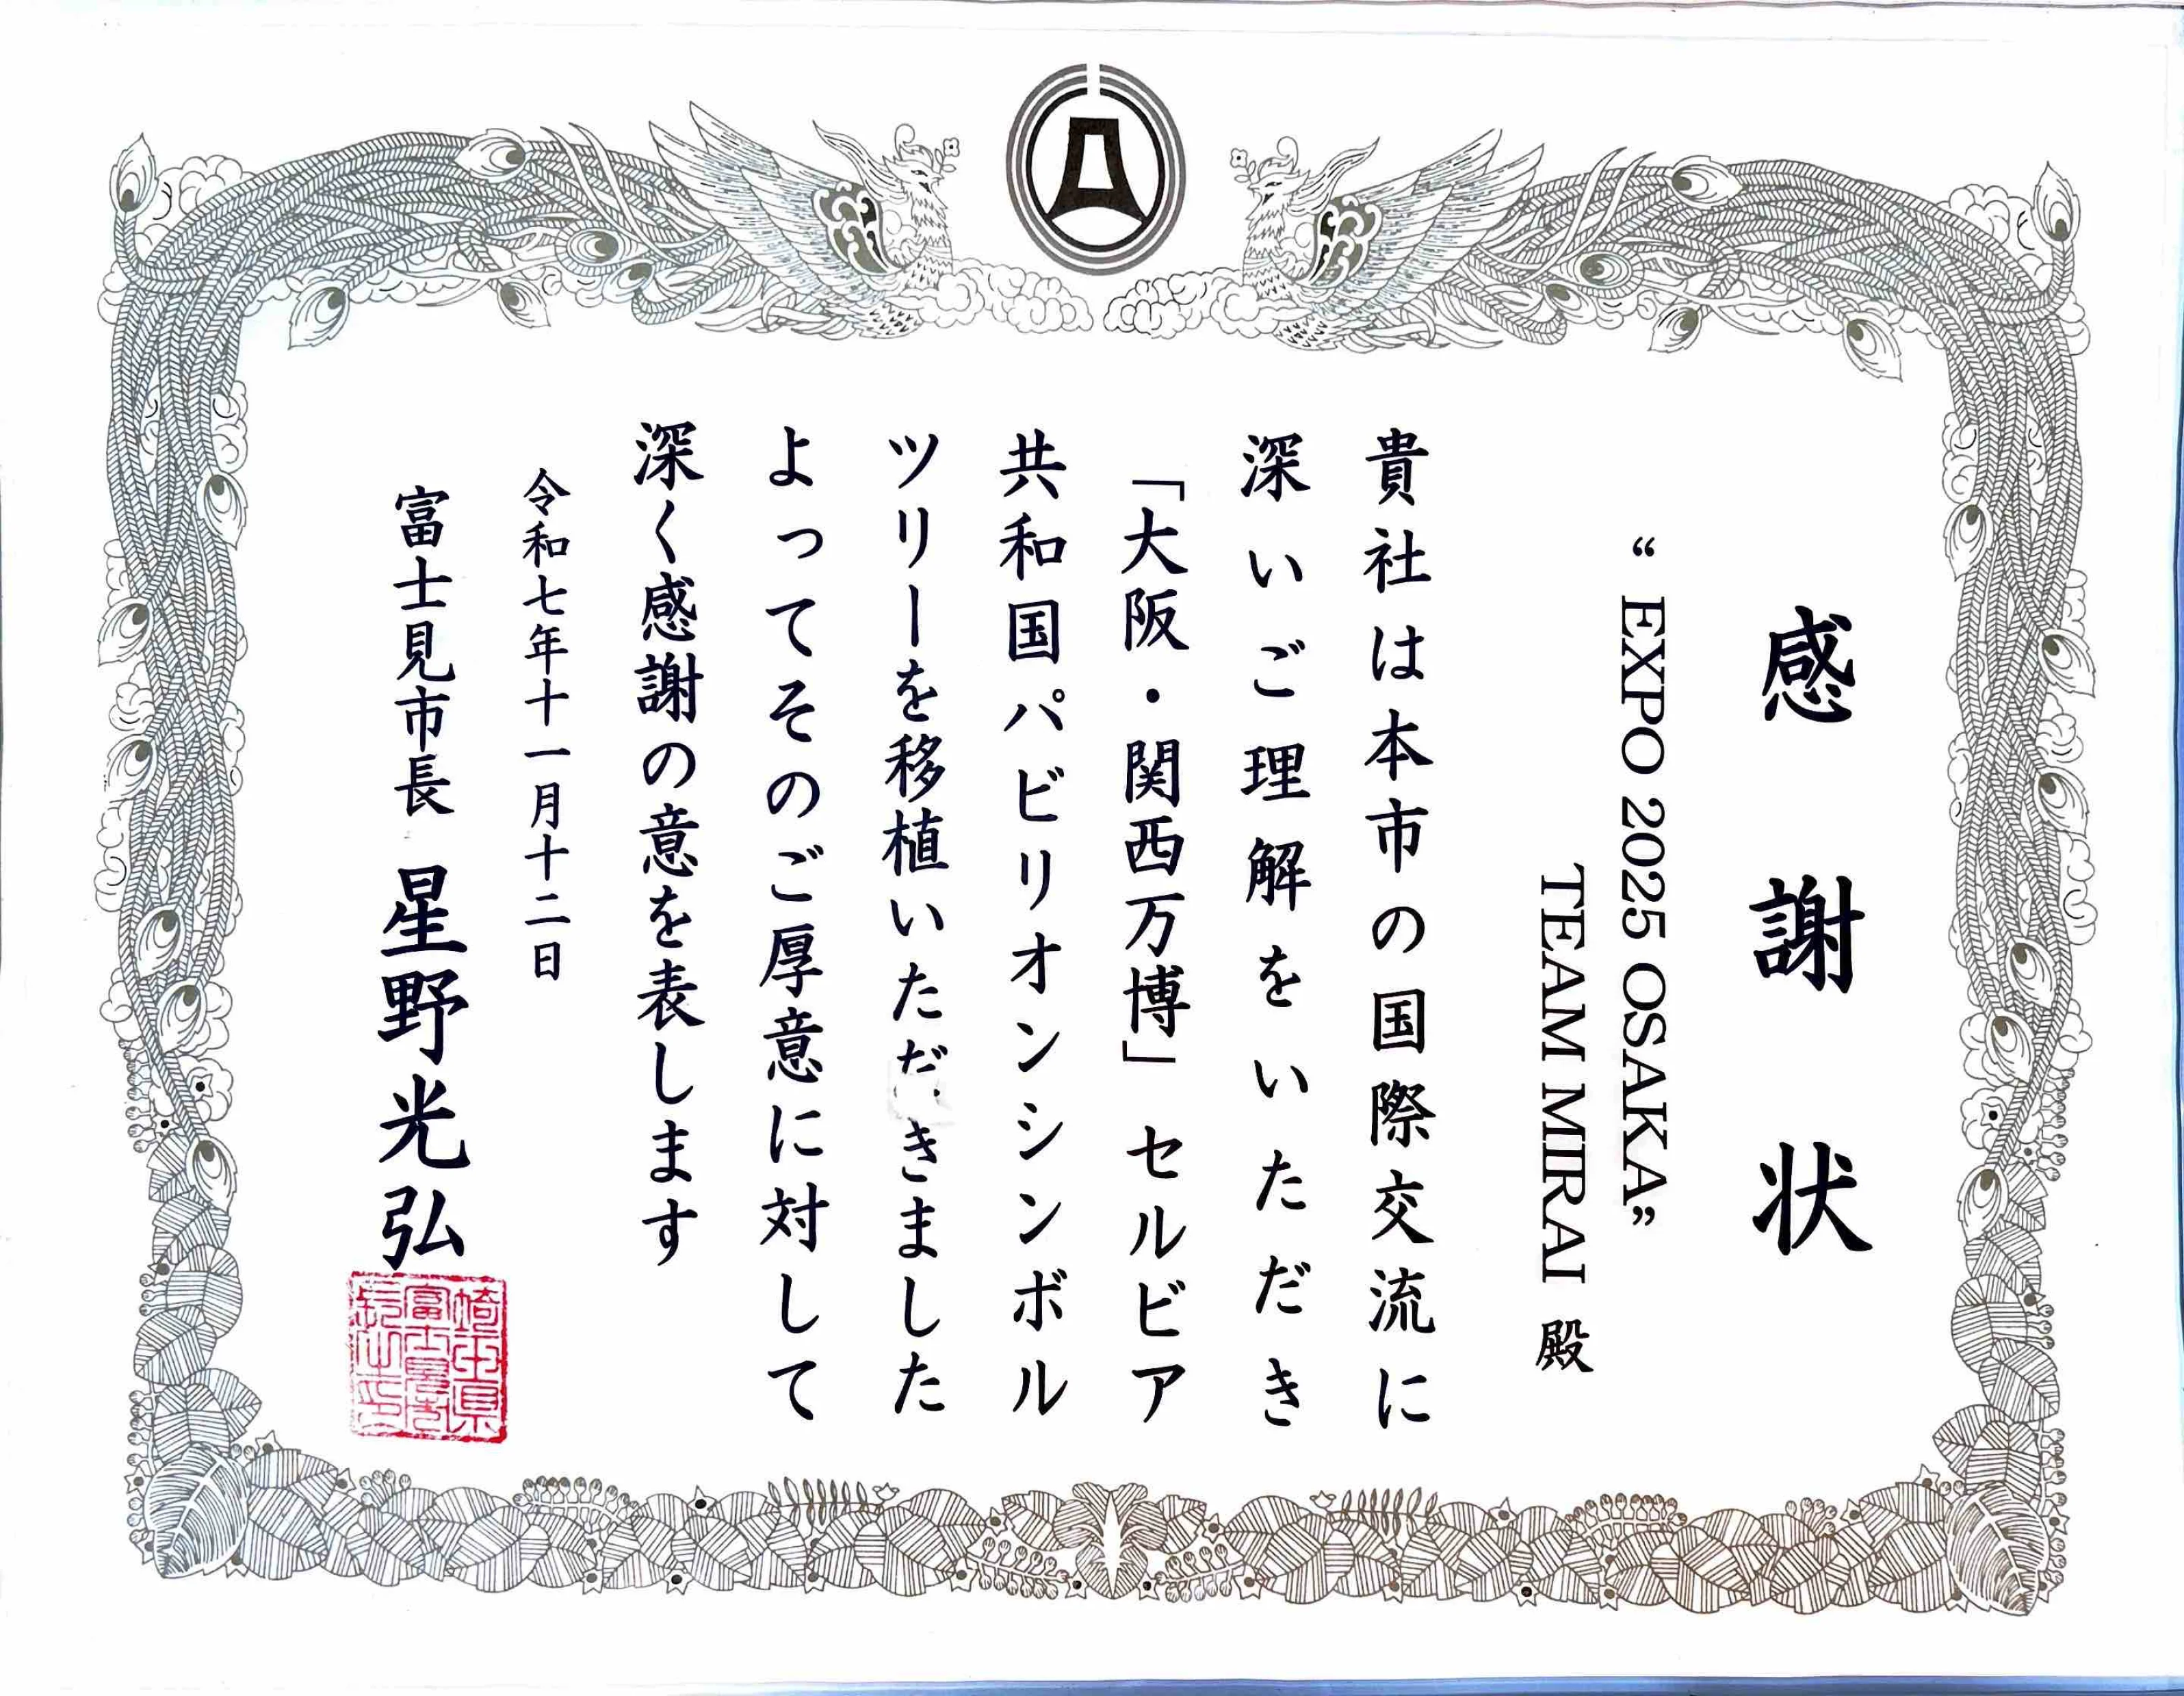 感謝状
“ EXPO 2025 OSAKA”
TEAM MIRAI 殿
貴社は本市の国際交流に
深いご理解をいただき
「大阪・関西万博」セルビア
共和国パビリオンシンボル
ツリーを移植いただきました
よってそのご厚意に対して
深く感謝の意を表します
令和七年十一月十二日
富士見市長 星野光弘
埼玉県
富士見市
長之印